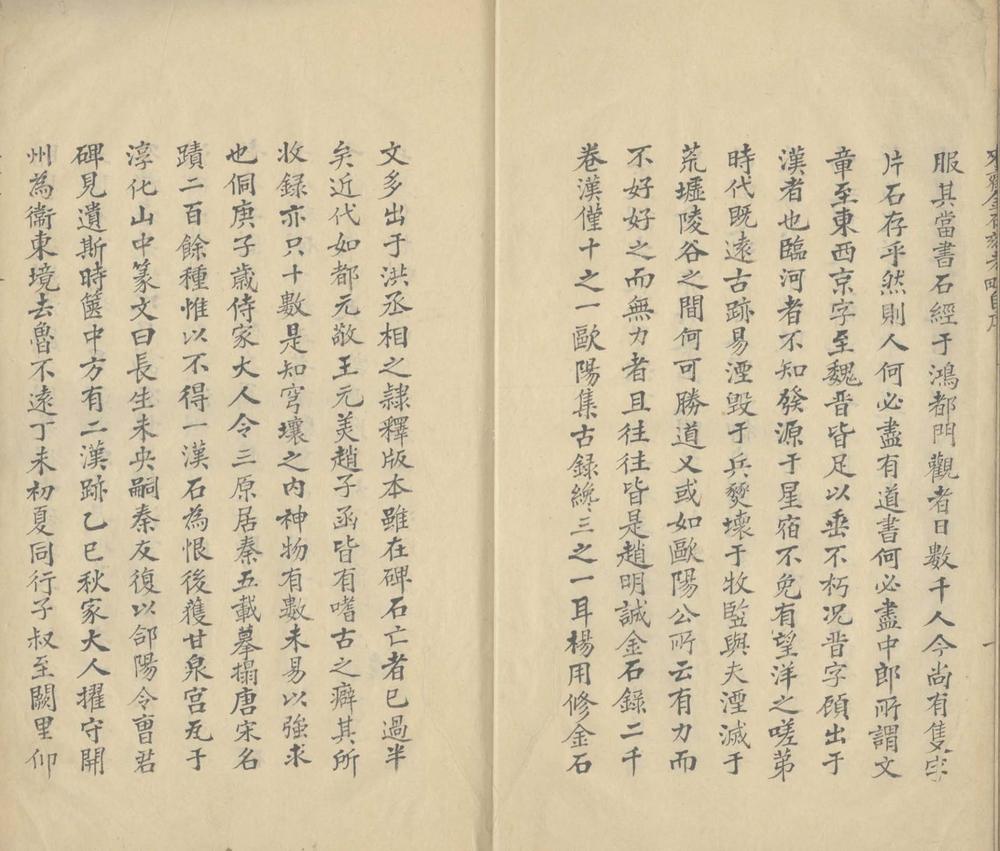 服其當書石經于鴻都門觀者日數千人今尚有隻字
片石存乎然則人何必盡有道書何必盡中郎所謂文
章至東西京字至魏晋皆足以垂不朽况晋字頋出于
漢者也臨河者不知發源于星宿不免有望洋之嗟苐
時代既遠古跡易湮毀于兵燹壞于牧監與夫湮滅于
荒墟陵谷之間何可勝道又或如歐陽公所云有力而
不好好之而無力者且往往皆是趙明誠金石錄二千
卷漢僅十之一歐陽集古録纔三之一耳楊用修金石
文多出于洪丞相之隷釋版本雖在碑石亡者已過半
矣近代如都元敬王元美趙子函皆有嗜古之癖其所
收録亦只十數是知穹壤之内神物有數未易以強求
也侗庚子歳侍家大人令三原居秦五載摹搨唐宋名
蹟二百餘種惟以不得一漢石為恨後獲甘泉宫瓦于
淳化山中篆文曰長生未央嗣秦友復以郃陽令曺君
碑見遺斯時篋中方有二漢跡乙巳秋家大人擢守開
州為衞東境去魯不遠丁未初夏同行子叔至闕里仰